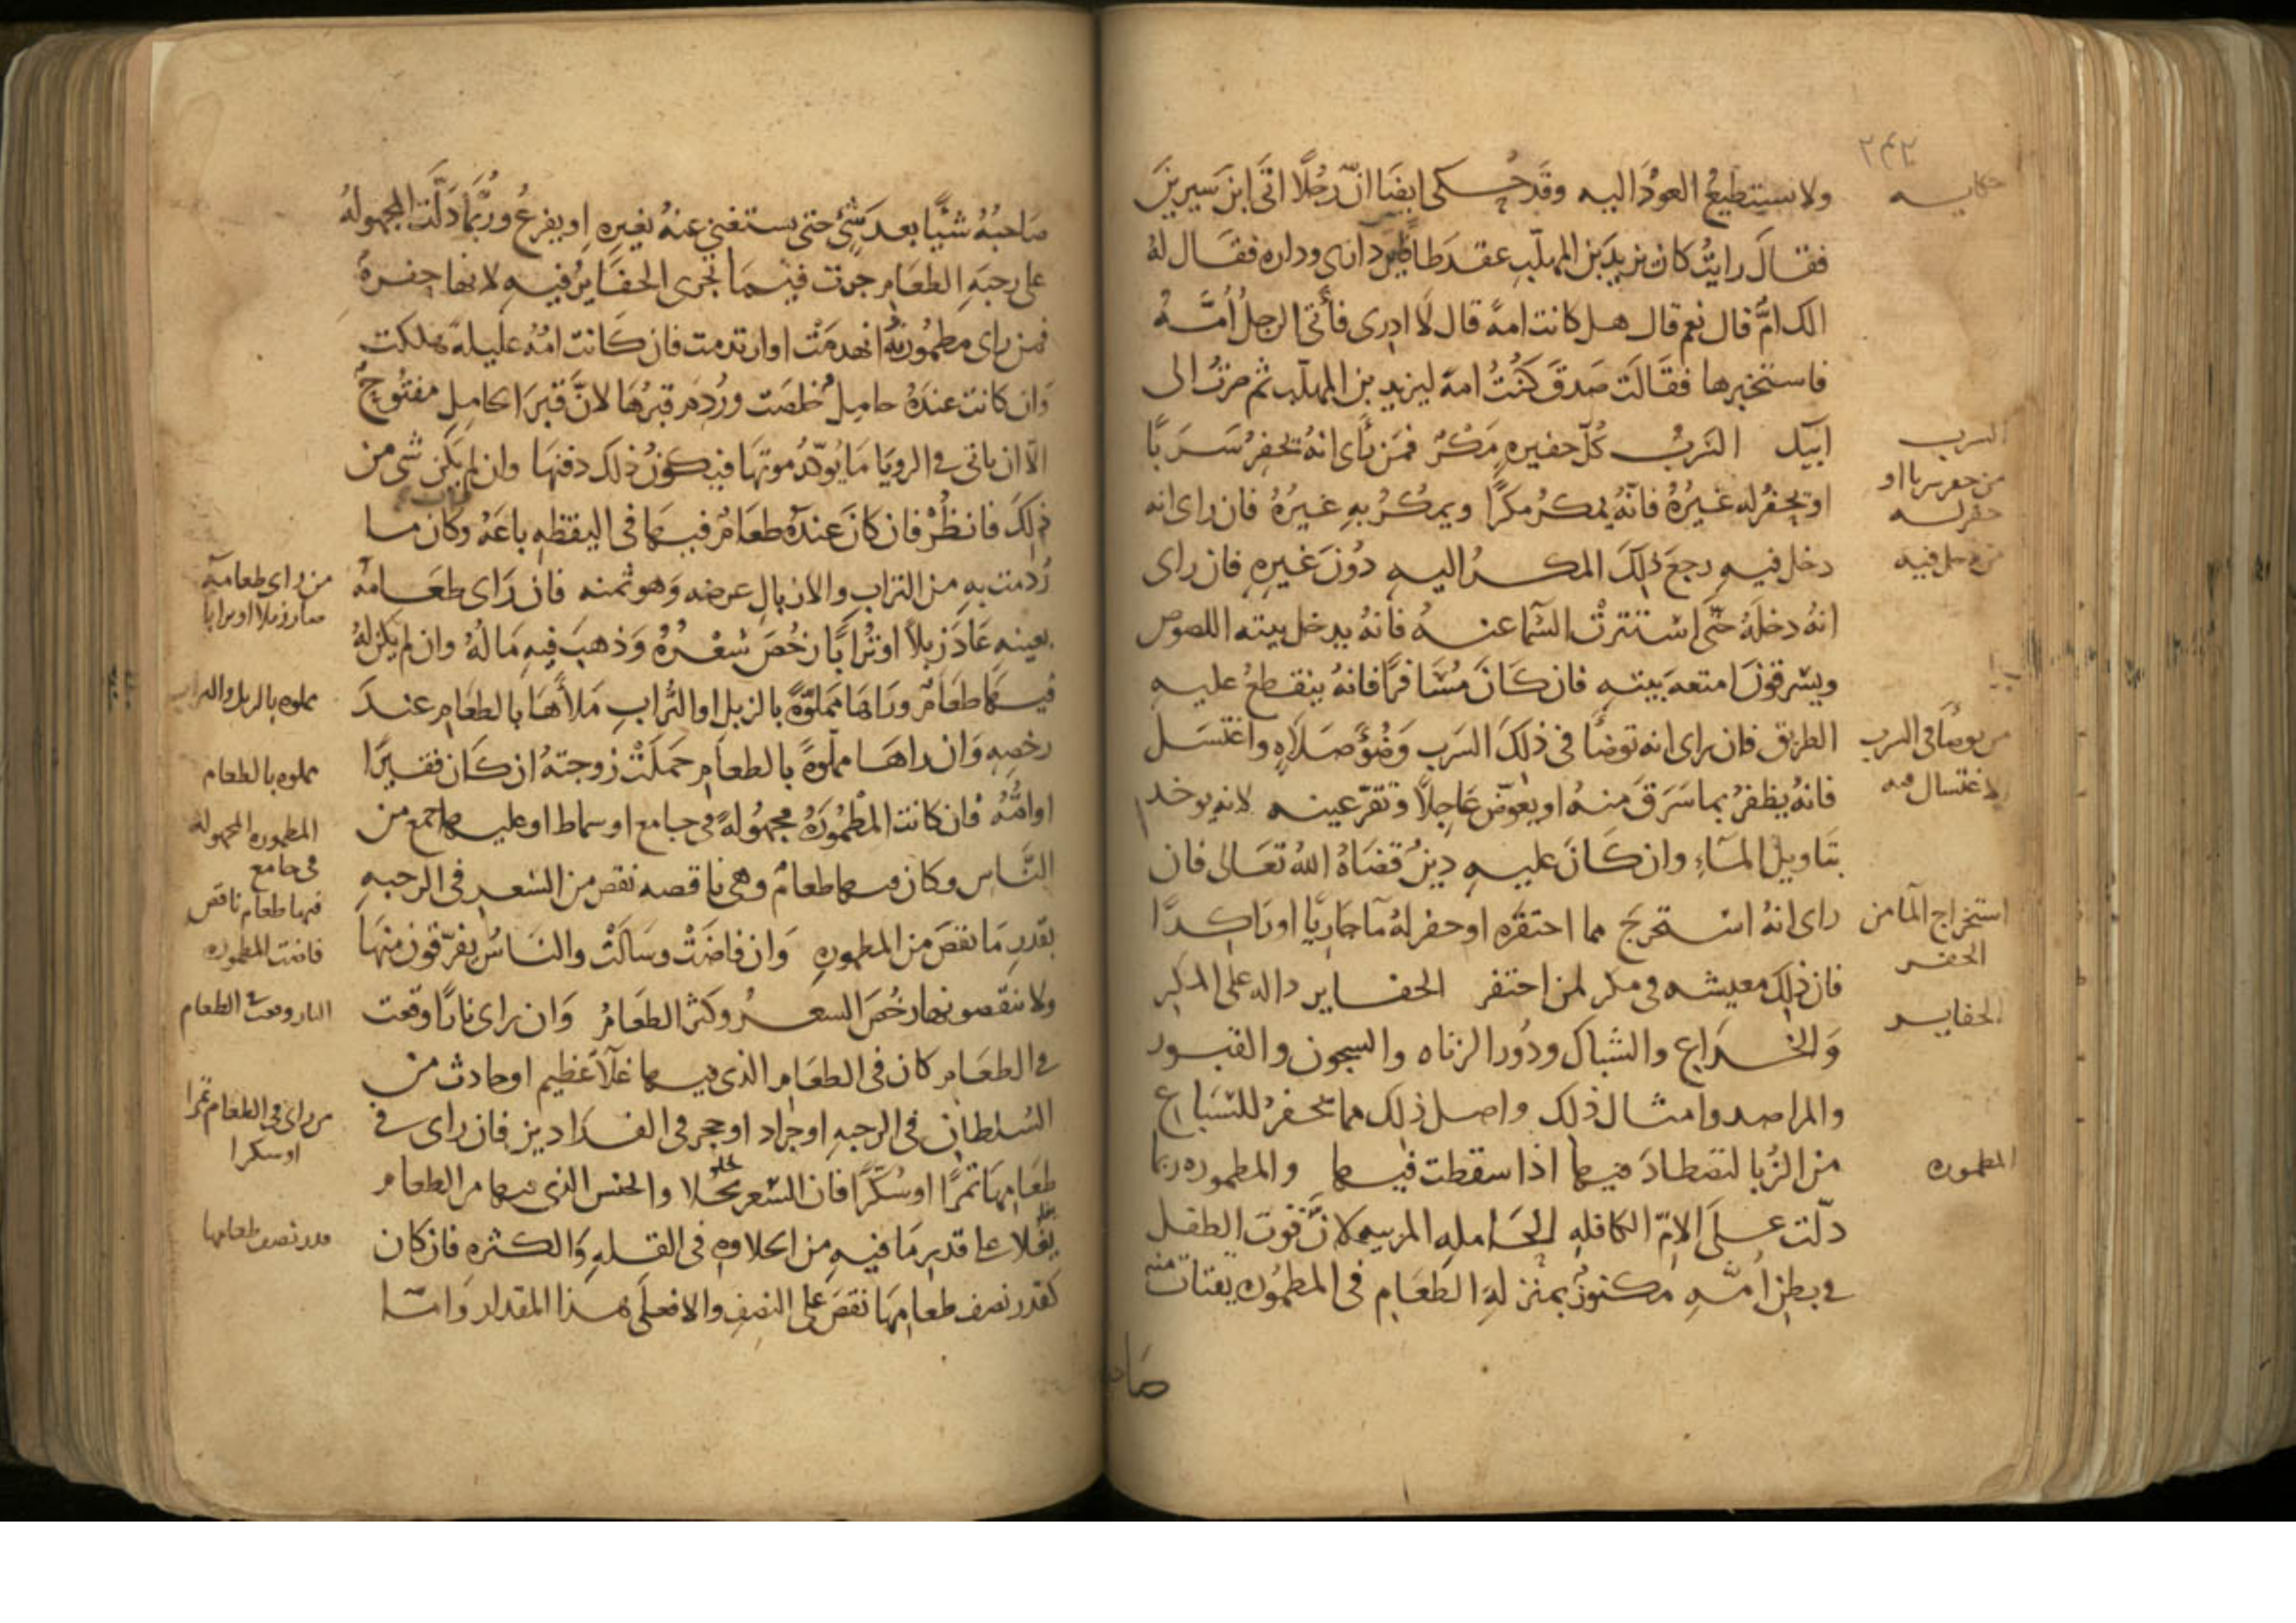 ٢٤٢
حكايه
ولا يستطيع العود اليه وقد حكى ايضا ان رجلا اتى ابن سيرين
فقال رايت كان يزيد بن المهلب عقد طاقا بين داري وداره فقال له
الك ام قال نعم قال هل كانت امة قال لا ادري فأتى الرجل امه
فاستخبرها فقالت صدق كنت امة ليزيد بن المهلب ثم صرت الى
ابيك السرب كل حفيره مكر فمن رأى انه يحفر سربا
او يحفر له غيره فانه يمكر مكرا ويمكر به غيره فان راى انه
دخل فيه رجع ذلك المكر اليه دون غيره فان راى
انه دخله حتى استترت السما عنه فانه يدخل بيته اللصوص
ويسرقون امتعة بيته فان كان مسافرا فانه ينقطع عليه
الطريق فان راى انه توضأ في ذلك السرب وضؤ صلاه واغتسل
فانه يظفر بما سرق منه او يعوض عاجلا وتقر عينه لانه يوخد
بتاويل الماء وان كان عليه دين قضاه الله تعالى فان
راى انه استخرج مما احتفره او حفر له مآ جاريا او راكدا
فان ذلك معيشه في مكر لمن احتفر الحفاير داله على المكر
والخداع والشباك ودور الزناه والسجون والقبور
والمراصد وامثال ذلك واصل ذلك مما يحفر للسباع
من الزبا لتصطاد فيها اذا سقطت فيها والمطموره ربما
دلت على الام الكافله الحامله المربيه لان قوت الطفل
في بطن امه مكنوز بمنزلة الطعام في المطموره يقتات منه
السرب
من حفر سربا او
حفر له
من دخل فيه
من توضأ في السرب
لاغتسال منه
استخراج المآ من
الحفر
الحفاير
المطموره
صاحبه شيًا بعد شئ حتى يستغني عنه بغيره او يفرغ وربما دلت المجهوله
على رحبة الطعام جرت فيما تجرى الحفاير فيه لانها حفرة
فمن راى مطمورة انهدمت او ارتدمت فان كانت امه عليلة هلكت
وان كانت عنده حامل خلصت وردم قبرها لان قبر الحامل مفتوح
الا ان ياتى في الرويا ما يؤكد موتها فيكون ذلك دفنها وان لم يكن شى من
ذلك فانظر فان كان عنده طعام فيها في اليقظه باعه وكان ما
ردمت به من التراب والازبال عرضه وهو ثمنه فان راى طعامه
بعينه عاد زبلا او ترابا رخص سعره وذهب فيه ماله وان لم يكن له
فيها طعام وراها مملؤة بالزبل او التراب ملأها بالطعام عند
رخصه وان راها مملوة بالطعام حملت زوجته ان كان فقيرا
او امته فان كانت المطمورة مجهولة في جامع او سماط او عليها جمع من
الناس وكان فيها طعام وهى ناقصه نقص من السعر في الرحبه
بقدر ما نقص من المطموره وان فاضت وسالت والناس يفرقون منها
ولا ينقصونها رخص السعر وكثر الطعام وان راى نارا وقعت
في الطعام كان في الطعام الذى فيها غلآ عظيم او حادث من
السلطان في الرحبه او جراد او حجر في الفدادين فان راى في
طعامها تمرا او سكرا فان السعر يحلا والجنس الذى فيها من الطعام
يغلا على قدر ما فيه من الحلاوه في القله والكثره فان كان
كقدر نصف طعامها نقص على النصف والا فعلى هذا المقدار واما
من راى طعامه
صار زبلا او ترابا
مملوه بالزبل والتراب
مملوه بالطعام
المطموره المجهوله
في جامع
فيها طعام ناقص
فاضت المطموره
النار وقعت في الطعام
من راى في الطعام تمرا
او سكرا
قدر نصف طعامها